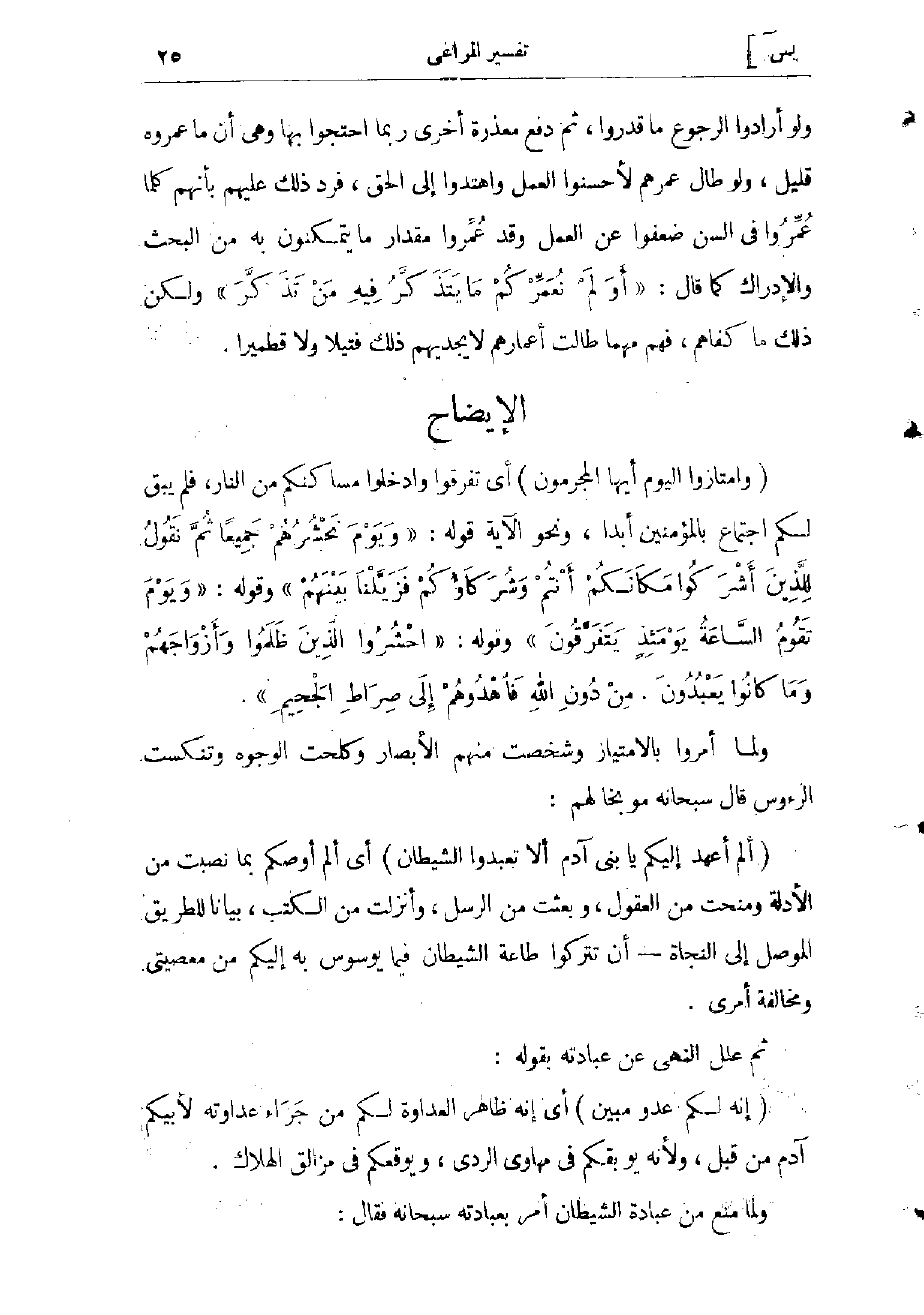 يس ]
تفسير المراغى
٢٥
ولو أرادوا الرجوع ما قدروا ، ثم دفع معذرة أخرى ربما احتجوا بها وهى أن ما عمروه
قليل ، ولو طال عمرهم لأحسنوا العمل واهتدوا إلى الحق ، فرد ذلك عليهم بأنهم كلما
عُمِّرُوا فى السن ضعفوا عن العمل وقد عُمِّروا مقدار ما يتمكنون به من البحث
والإدراك كما قال : « أَوَلَمْ نُعَمِّرْكُمْ مَا يَتَذَكَّرُ فِيهِ مَنْ تَذَكَّرَ » ولكن
ذلك ما كفاهم ، فهم مهما طالت أعمارهم لا يجديهم ذلك فتيلا ولا قطميرا .
الإيضاح
( وامتازوا اليوم أيها المجرمون ) أى تفرقوا وادخلوا مساكنكم من النار، فلم يبق
لكم اجتماع بالمؤمنين أبدا ، ونحو الآية قوله : « وَيَوْمَ نَحْشُرُهُمْ جَمِيعًا ثُمَّ نَقُولُ
لِلَّذِينَ أَشْرَكُوا مَكَانَكُمْ أَنْتُمْ وَشُرَكَاؤُكُمْ فَزَيَّلْنَا بَيْنَهُمْ » وقوله : « وَيَوْمَ
تَقُومُ السَّاعَةُ يَوْمَئِذٍ يَتَفَرَّقُونَ » وقوله : « احْشُرُوا الَّذِينَ ظَلَمُوا وَأَزْوَاجَهُمْ
وَمَا كَانُوا يَعْبُدُونَ . مِنْ دُونِ اللهِ فَاهْدُوهُمْ إِلَى صِرَاطِ الْجَحِيمِ » .
ولما أمروا بالامتياز وشخصت منهم الأبصار وكلحت الوجوه وتنكست
الرءوس قال سبحانه موبخا لهم :
( ألم أعهد إليكم يا بنى آدم ألا تعبدوا الشيطان ) أى ألم أوصكم بما نصبت من
الأدلة ومنحت من العقول ، وبعثت من الرسل ، وأنزلت من الكتب ، بيانا للطريق
الموصل إلى النجاة — أن تتركوا طاعة الشيطان فيما يوسوس به إليكم من معصيتى
ومخالفة أمرى .
ثم علل النهى عن عبادته بقوله :
( إنه لكم عدو مبين ) أى إنه ظاهر العداوة لكم من جَرَاء عداوته لأبيكم
آدم من قبل ، ولأنه يوبقكم فى مهاوى الردى ، ويوقعكم فى مزالق الهلاك .
ولما منع من عبادة الشيطان أمر بعبادته سبحانه فقال :